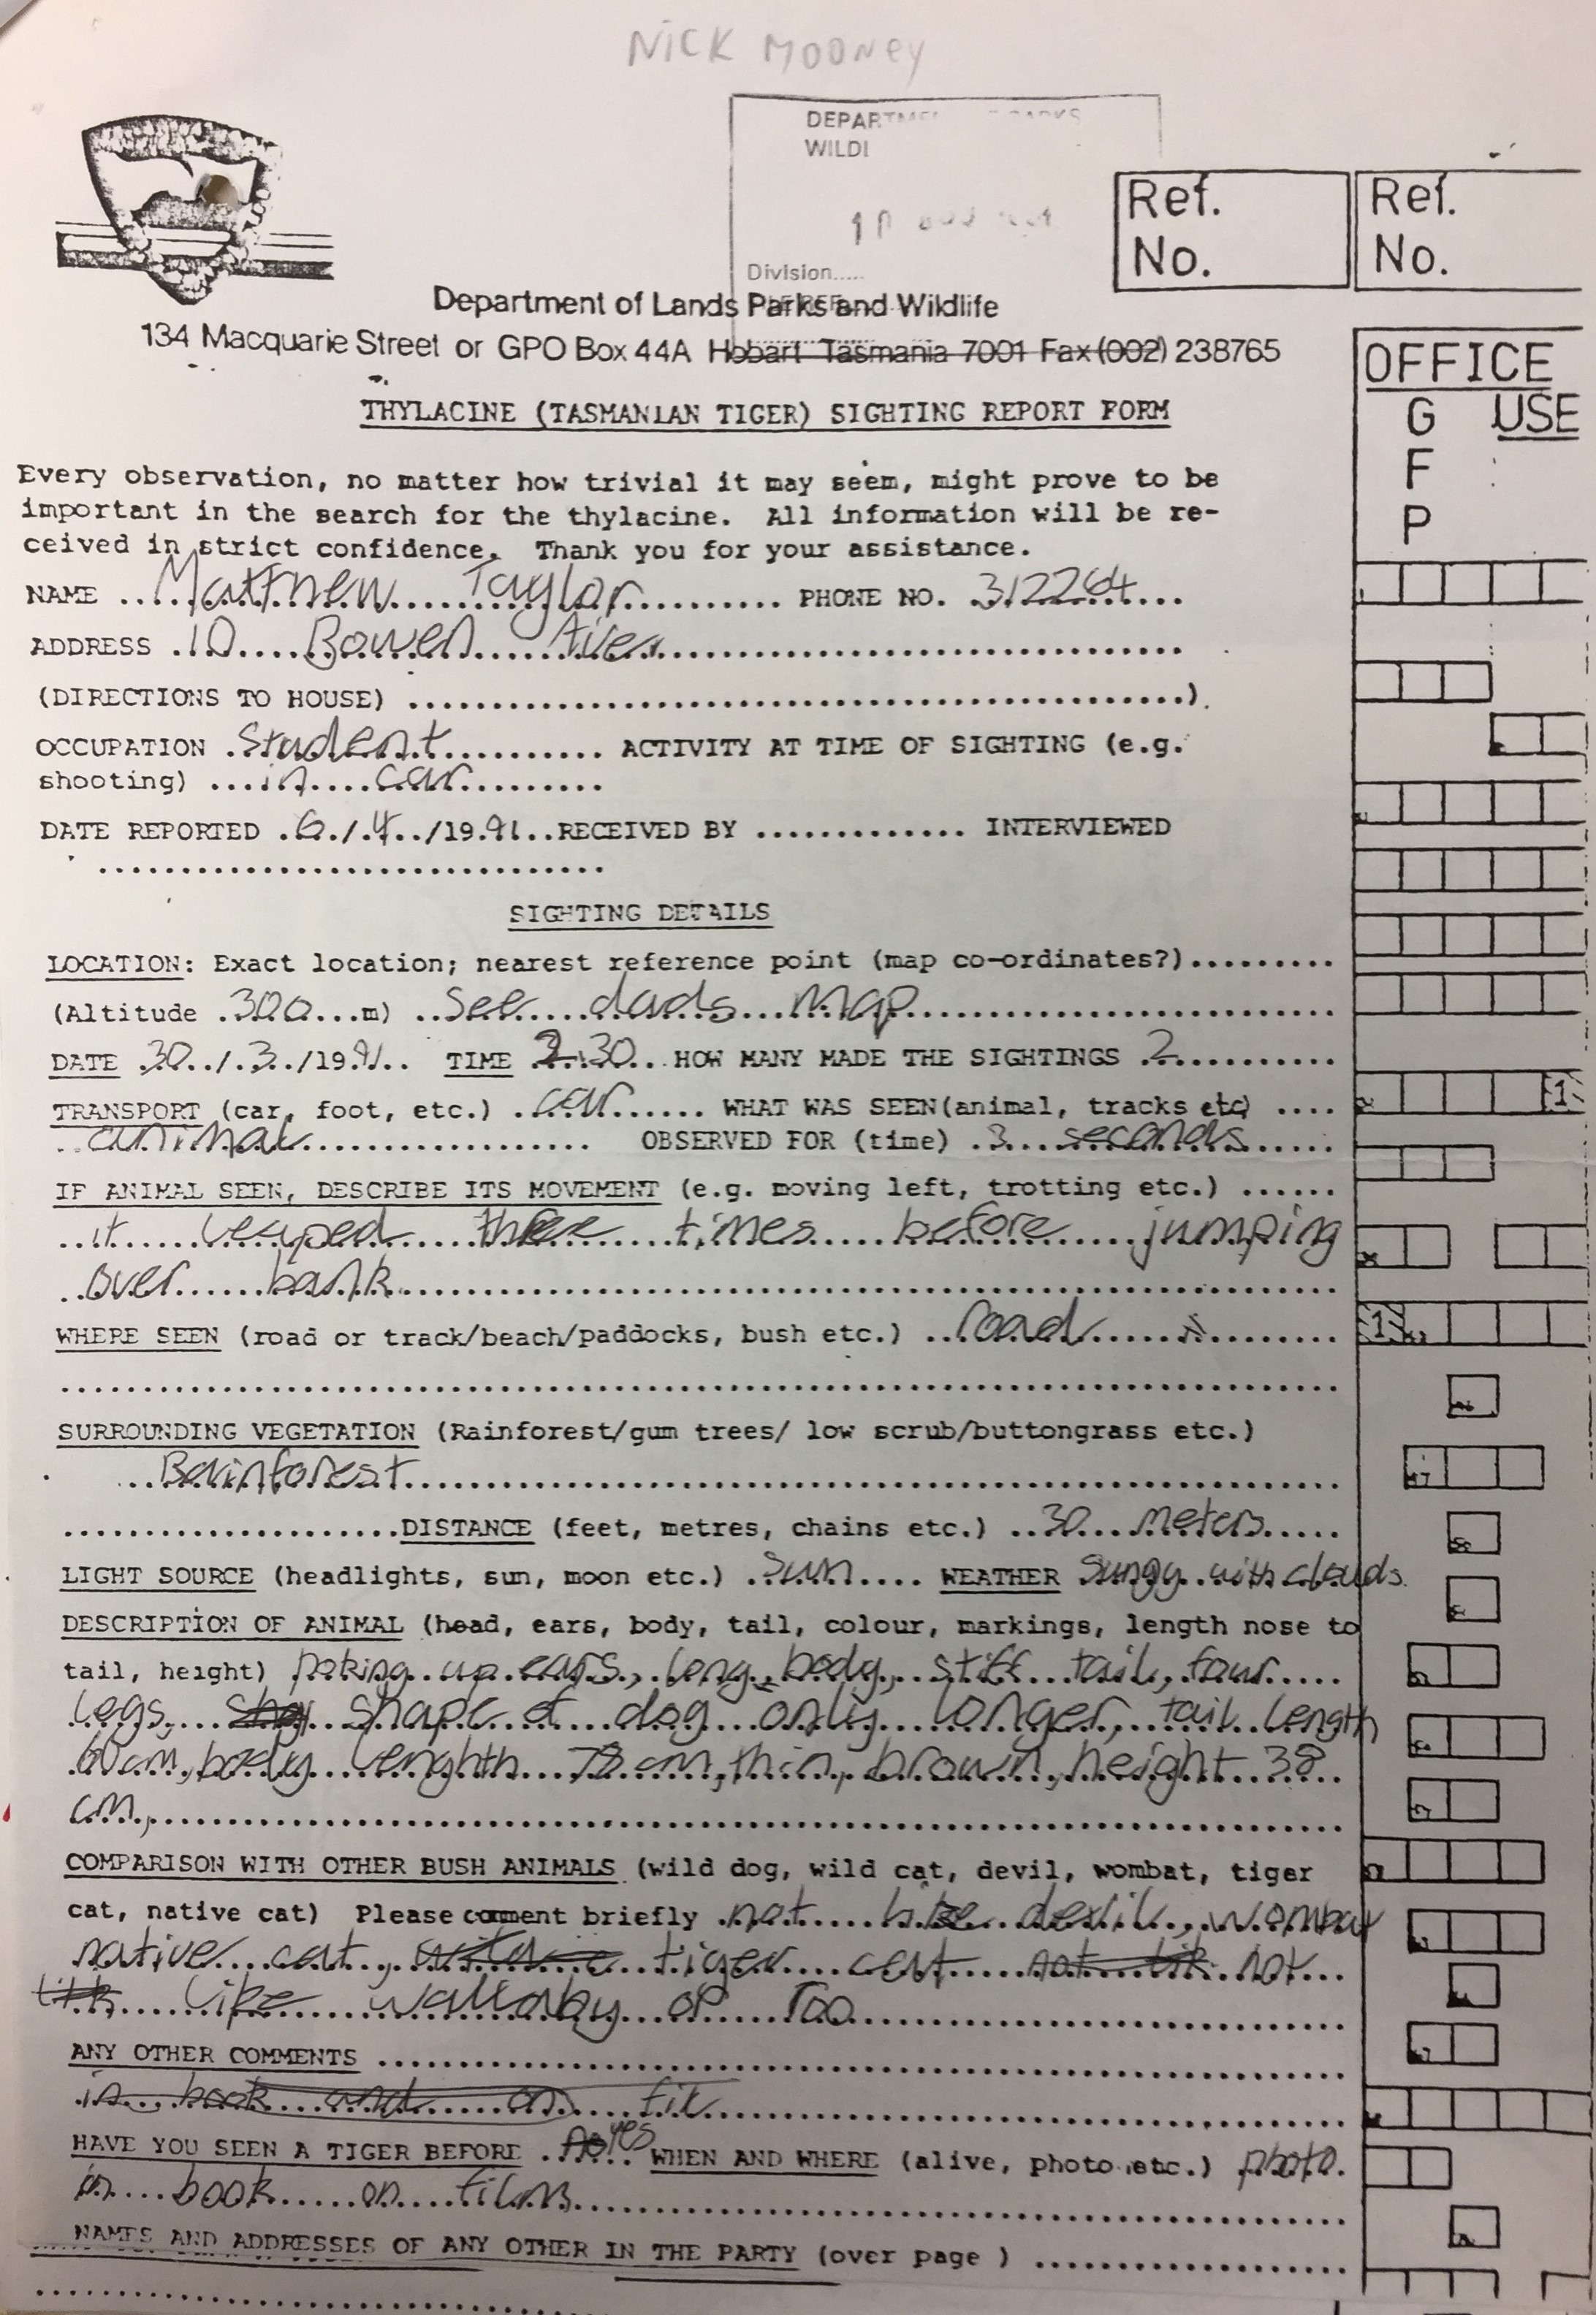 NICK MOONEY
DEPARTMENT PARKS
WILDI
Division.....
Ref.
No.
Ref.
No.
Department of Lands Parks and Wildlife
134 Macquarie Street or GPO Box 44A Hobart Tasmania 7001 Fax (002) 238765
THYLACINE (TASMANIAN TIGER) SIGHTING REPORT FORM
OFFICE
G USE
F
P
Every observation, no matter how trivial it may seem, might prove to be
important in the search for the thylacine. All information will be re-
ceived in strict confidence. Thank you for your assistance.
NAME Matthew Taylor PHONE NO. 312264
ADDRESS 10 Bowen
(DIRECTIONS TO HOUSE) ........)
OCCUPATION Student ACTIVITY AT TIME OF SIGHTING (e.g.
shooting) in car
DATE REPORTED 6/4/1991 RECEIVED BY ............. INTERVIEWED
SIGHTING DETAILS
LOCATION: Exact location; nearest reference point (map co-ordinates?).........
(Altitude 300 m) See dads map
DATE 30/3/1991 TIME 2.30 HOW MANY MADE THE SIGHTINGS 2
TRANSPORT (car, foot, etc.) car WHAT WAS SEEN(animal, tracks etc) ....
animal OBSERVED FOR (time) 3 seconds
IF ANIMAL SEEN, DESCRIBE ITS MOVEMENT (e.g. moving left, trotting etc.) ......
it leaped three times before jumping
over bank
WHERE SEEN (road or track/beach/paddocks, bush etc.) road
SURROUNDING VEGETATION (Rainforest/gum trees/ low scrub/buttongrass etc.)
Rainforest
DISTANCE (feet, metres, chains etc.) 30 meters
LIGHT SOURCE (headlights, sun, moon etc.) Sun WEATHER Sunny with clouds.
DESCRIPTION OF ANIMAL (head, ears, body, tail, colour, markings, length nose to
tail, height) poking up ears, long body, stiff tail, four
legs, shape of dog only longer, tail length
60cm, body lenghth cm, thin, brown, height 38
cm,
COMPARISON WITH OTHER BUSH ANIMALS (wild dog, wild cat, devil, wombat, tiger
cat, native cat) Please comment briefly not like devil, wombat
native cat, tiger cat not
like wallaby or roo
ANY OTHER COMMENTS
in book and on
HAVE YOU SEEN A TIGER BEFORE yes WHEN AND WHERE (alive, photo etc.) photo
in book on films
NAMES AND ADDRESSES OF ANY OTHER IN THE PARTY (over page )